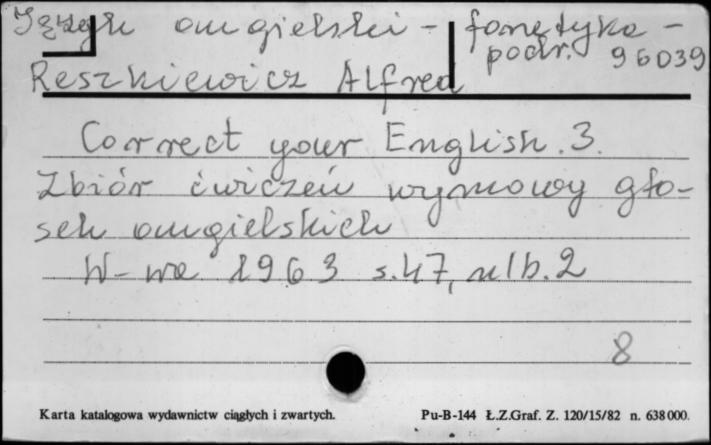 Język angielski - fonetyka -
podr. 96039
Reszkiewicz Alfred
Correct your English. 3.
Zbiór ćwiczeń wymowy gło-
sek angielskich
W-wa 1963 s. 47, nlb. 2
8
Karta katalogowa wydawnictw ciągłych i zwartych. Pu-B-144 Ł.Z.Graf. Z. 120/15/82 n. 638000.